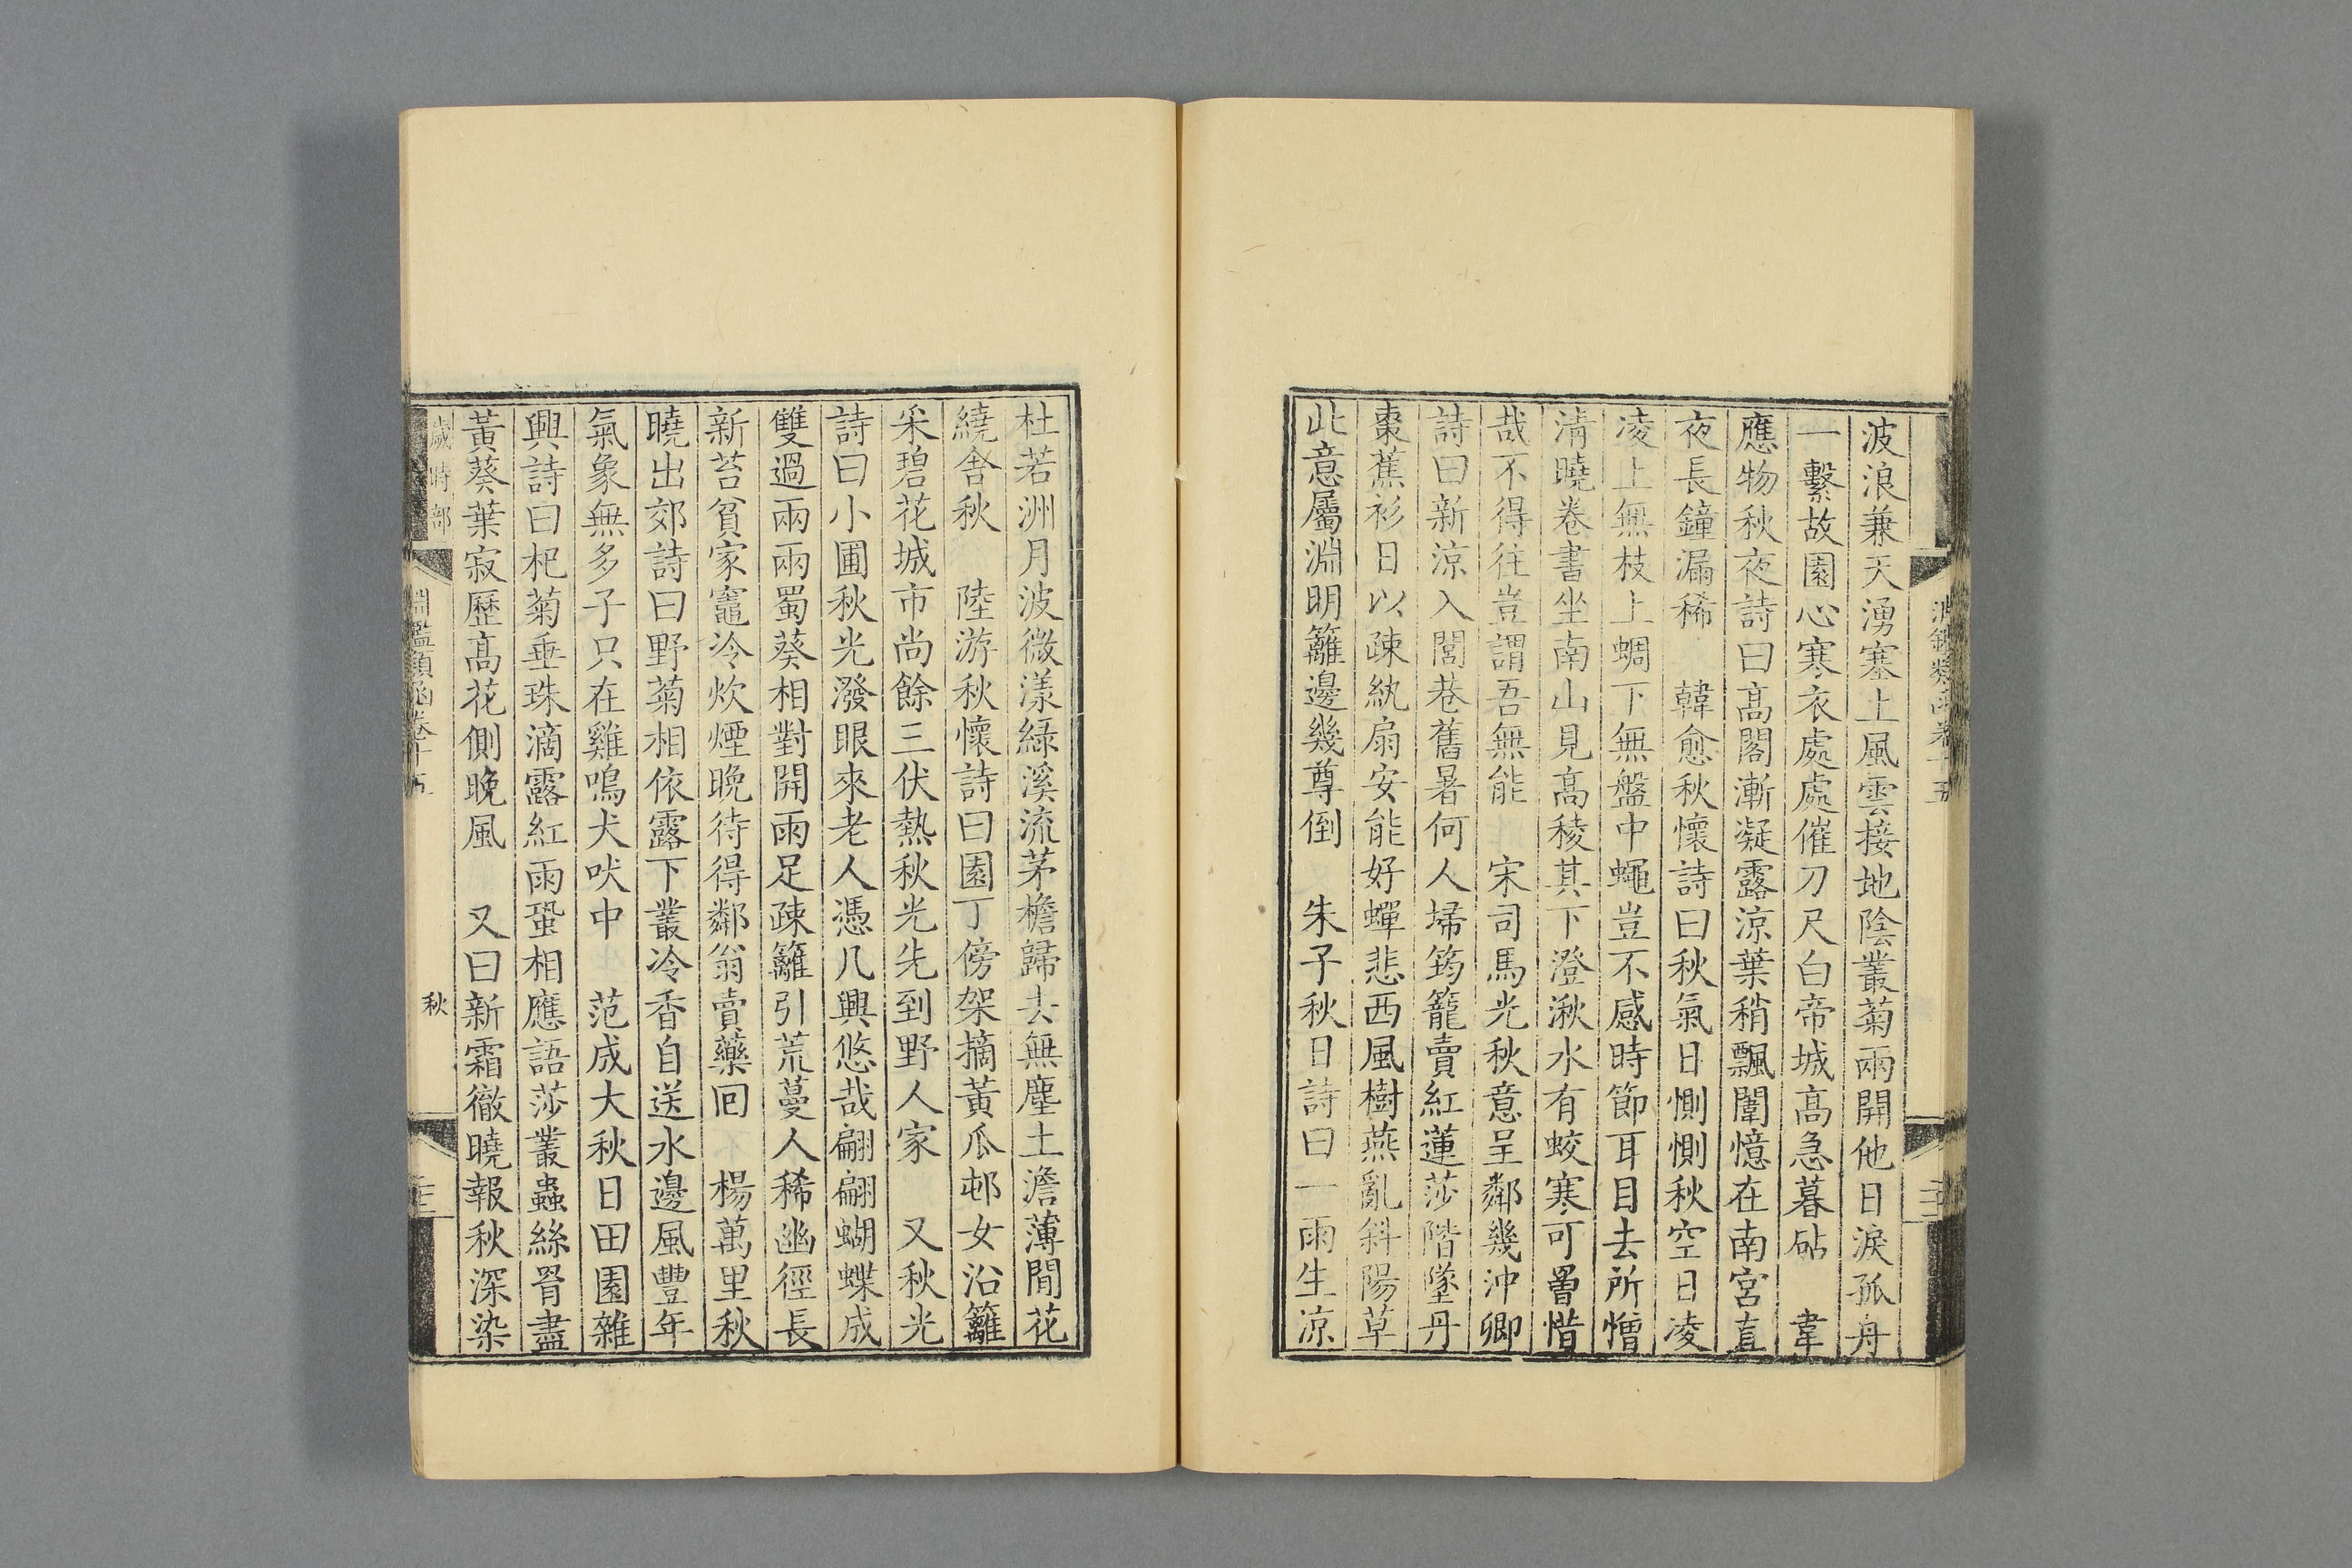 波浪兼天湧塞上風雲接地陰叢菊兩開他日淚孤舟
一繫故園心寒衣處處催刀尺白帝城高急暮砧　韋
應物秋夜詩曰高閣漸凝露涼葉稍飄闈憶在南宮直
夜長鐘漏稀　韓愈秋懷詩曰秋氣日惻惻秋空日凌
凌上無枝上蜩下無盤中蠅豈不感時節耳目去所憎
清曉卷書坐南山見高稜其下澄湫水有蛟寒可罾惜
哉不得往豈謂吾無能　宋司馬光秋意呈鄰幾沖卿
詩曰新涼入閭巷舊暑何人埽筠籠賣紅蓮莎階墜丹
棗蕉衫日以疎紈扇安能好蟬悲西風樹燕亂斜陽草
此意屬淵明籬邊幾尊倒　朱子秋日詩曰一雨生涼
杜若洲月波微漾綠溪流茅檐歸去無塵土澹薄閒花
繞舍秋　陸游秋懷詩曰園丁傍架摘黃瓜邨女沿籬
采碧花城市尚餘三伏熱秋光先到野人家　又秋光
詩曰小圃秋光潑眼來老人憑几興悠哉翩翩蝴蝶成
雙過兩兩蜀葵相對開雨足疎籬引荒蔓人稀幽徑長
新苔貧家竈冷炊煙晚待得鄰翁賣藥回　楊萬里秋
曉出郊詩曰野菊相依露下叢冷香自送水邊風豐年
氣象無多子只在雞鳴犬吠中　范成大秋日田園雜
興詩曰杞菊垂珠滴露紅兩蛩相應語莎叢蟲絲罥盡
黃葵葉寂歷高花側晚風　又曰新霜徹曉報秋深染
歲時部
淵鑑類函卷十五
秋